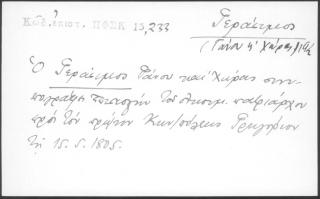 Κωδ. ἐπιστ. ΠΦΣΚ 15,233
Γεράσιμος
(Γάνου κ' Χώρας)
Ὁ Γεράσιμος Γάνου καὶ Χώρας συνυ-
πογράφει ἐπιστολὴν τοῦ οἰκουμ. πατριάρχου
πρὸς τὸν πρώην Κων/πόλεως Γρηγόριον
τῇ 15. 5. 1805.